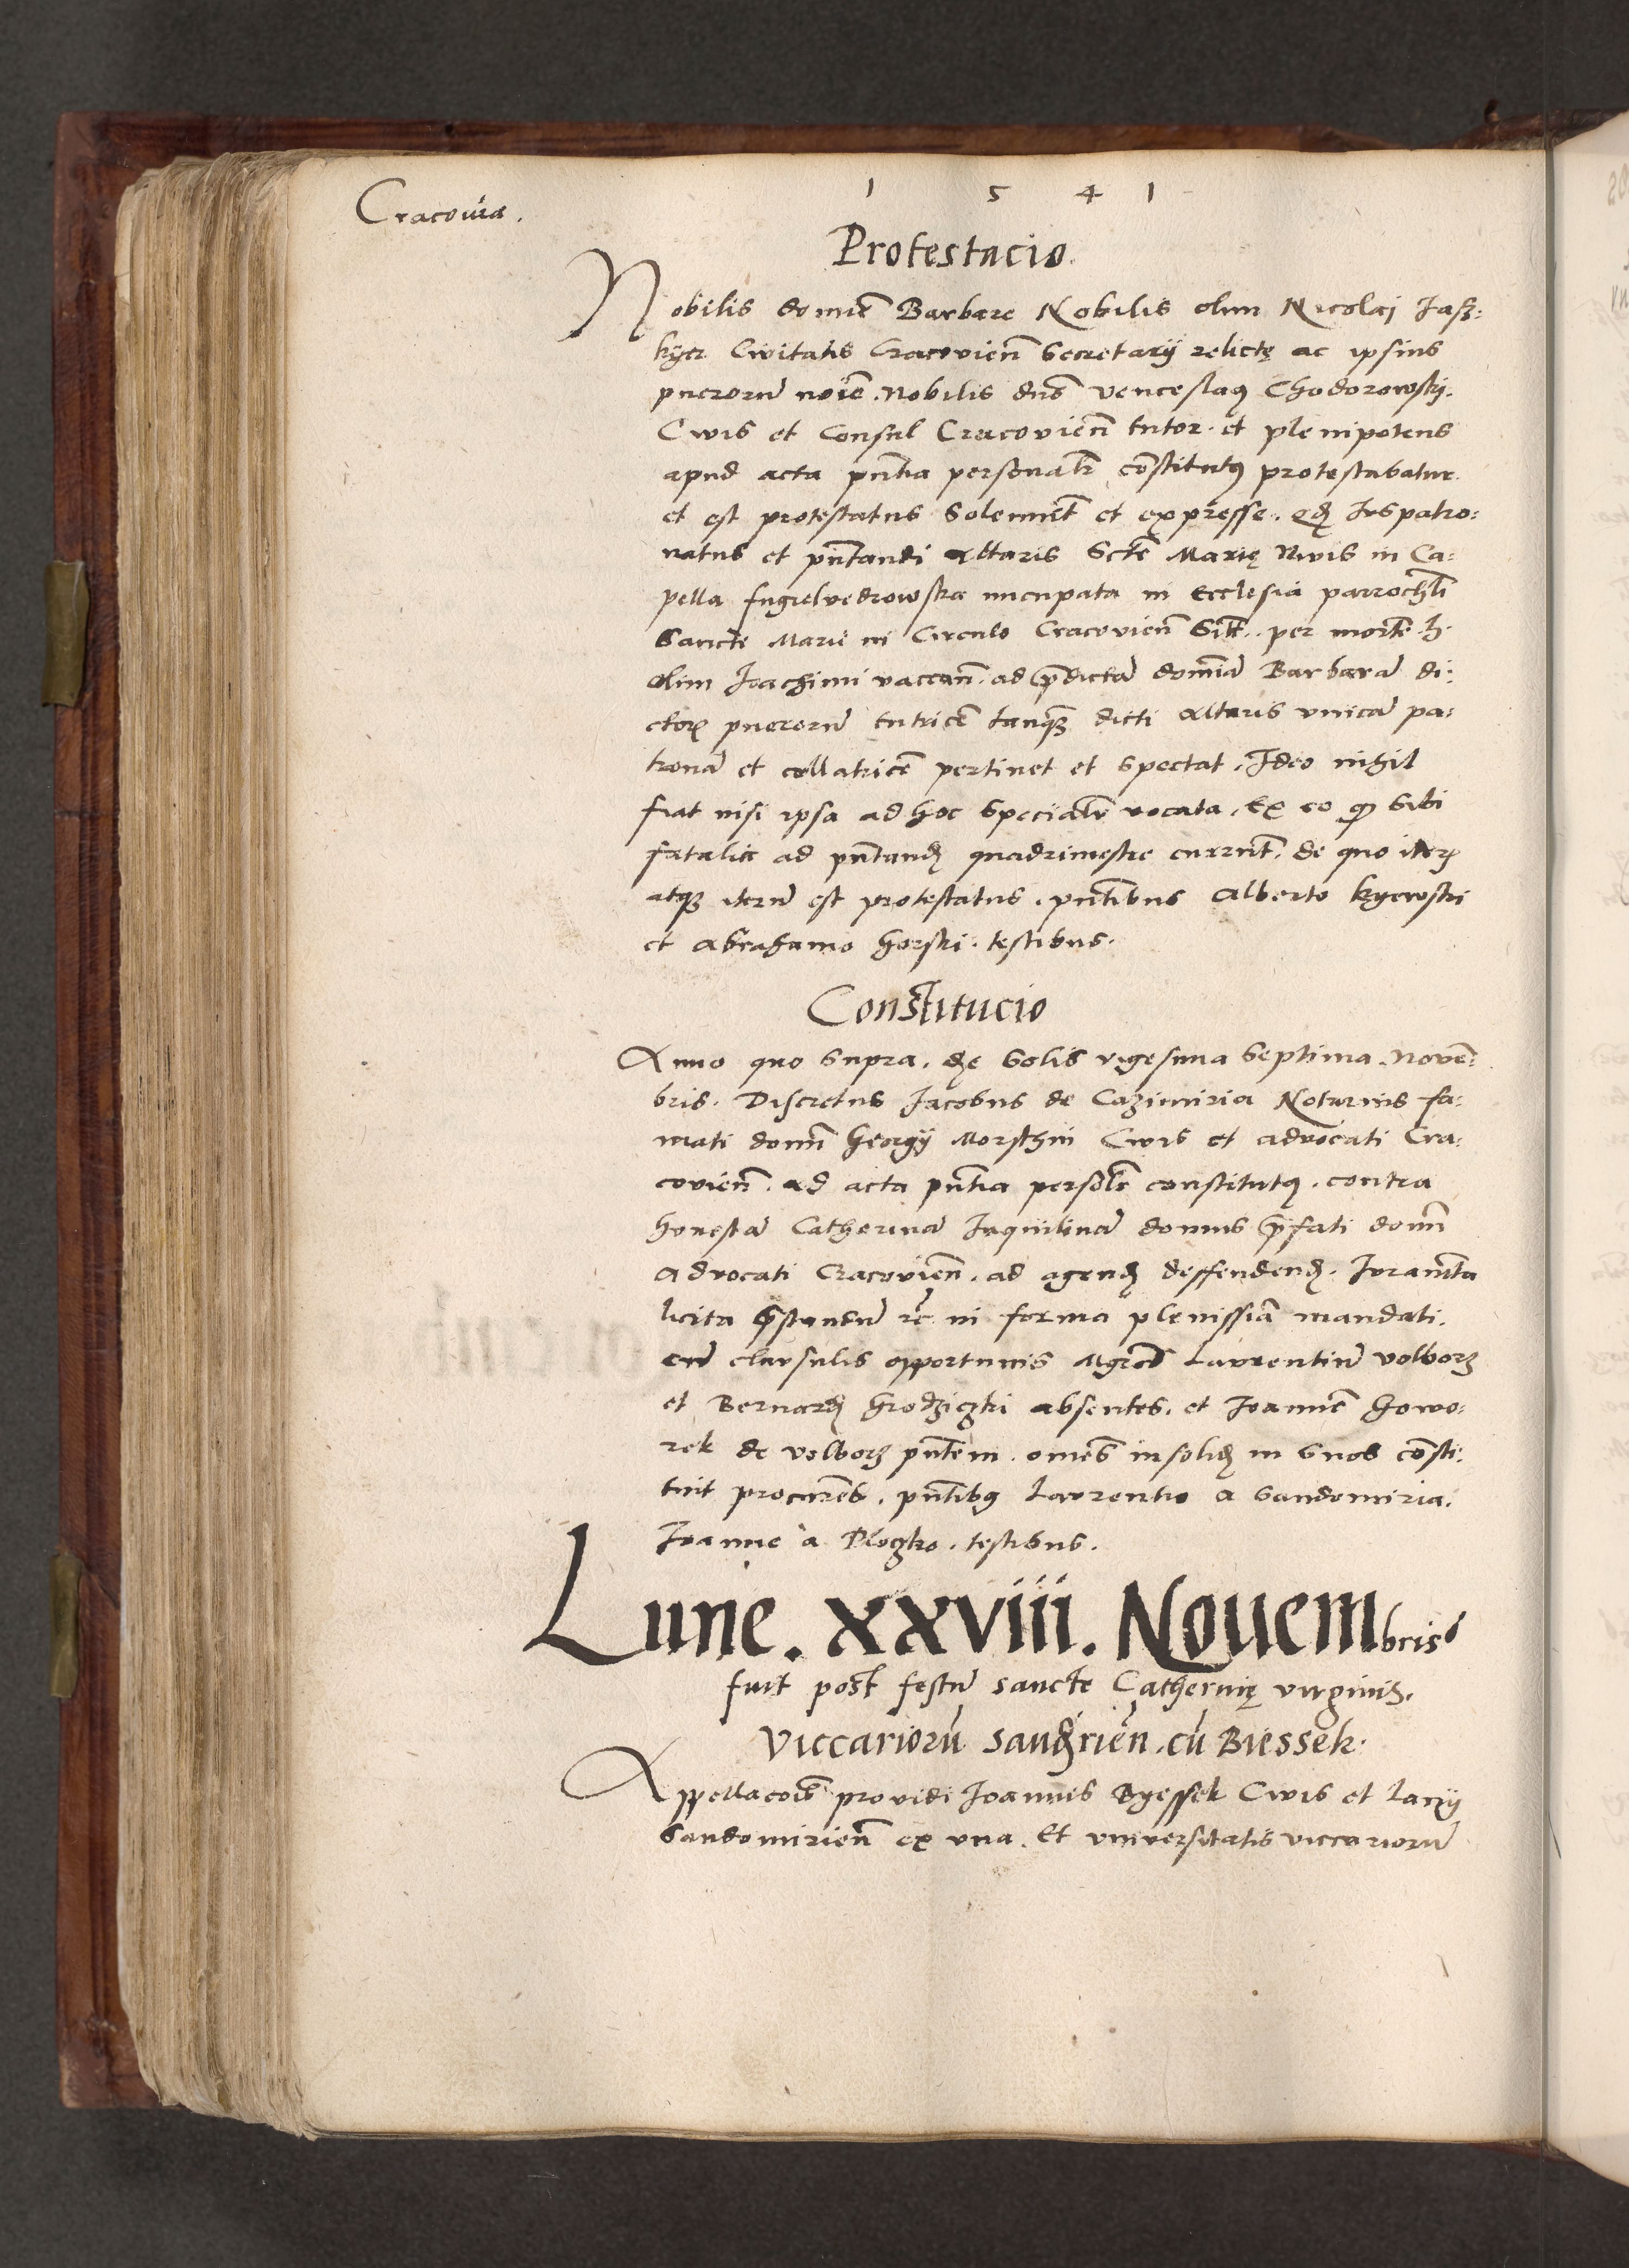 1 5 4 1
Cracovia.
Protestacio.
Nobilis domine Barbare Nobilis olim Nicolai Jas=
kyer Civitatis Cracovien̄ Secretarij relictę ac ipsius
puerorū noīe. Nobilis dn̄s Venceslaus Chodorowskj.
Civis et Consul Cracovien̄ tutor et plenipotens
apud acta pn̄tia personalr̄ cōstitutus protestabatur
et est protestatus Solennit̄ et expresse. qd Juspatro=
natus et pn̄tandi altaris Sctē Marię Nivis in Ca=
pella nuncupata in Ecclesia parrochli
Sancte Marie in Circulo Cracovien̄ Sit̄. per mortē h.
olim Joachimi vaccan̄. ad p̄dictā dominā Barbarā di=
ctor̄ puerorū tutricē tanq̄ dicti altaris vnicā pa=
tronā et collatricē pertinet et spectat. Ideo nihil
fiat nisi ipsa ad hoc specialr̄ vocata. Ex eo q sibi
fatalia ad pn̄tand quadrimestre currunt. de quo iter
atq iterū est protestatus. pn̄tibus Alberto kyewski
et Abrahamo Gorski. testibus.
Constitucio
Anno quo supra. die Solis vigesima Septima. Novē=
bris. Discretus Jacobus de Cazimiria Notarius fa=
mati domī Georgij Morsthin Civis et advocati Cra=
covien̄. ad acta pn̄tia persolr̄ constitutus. contra
honestā Catherinā Inquilinā domus p̄fati domī
Advocati Cracovien̄. ad agend deffendend. Juramēta
licita p̄standū rē in forma plenissiā mandati.
cū clausulis opportunis Mgrōs Laurentiū volborz
et Bernard Grodziczki absentes. et Joannē Gowo=
rek de volborz pn̄tem. omēs insolid in suos cōsti=
tuit procurēs. pn̄tibus Laurentio a Sandomiria.
Joanne a Ploczko. testibus.
Lune. xxviii. Novembris
fuit post festū sancte Catherinę virginis.
Viccariorū Sandrien̄. cū Biessek.
Appellacōis providi Joannis Byessek Civis et Lanij
Sandomirien̄ ex vna. Et vniversitatis viccariorū